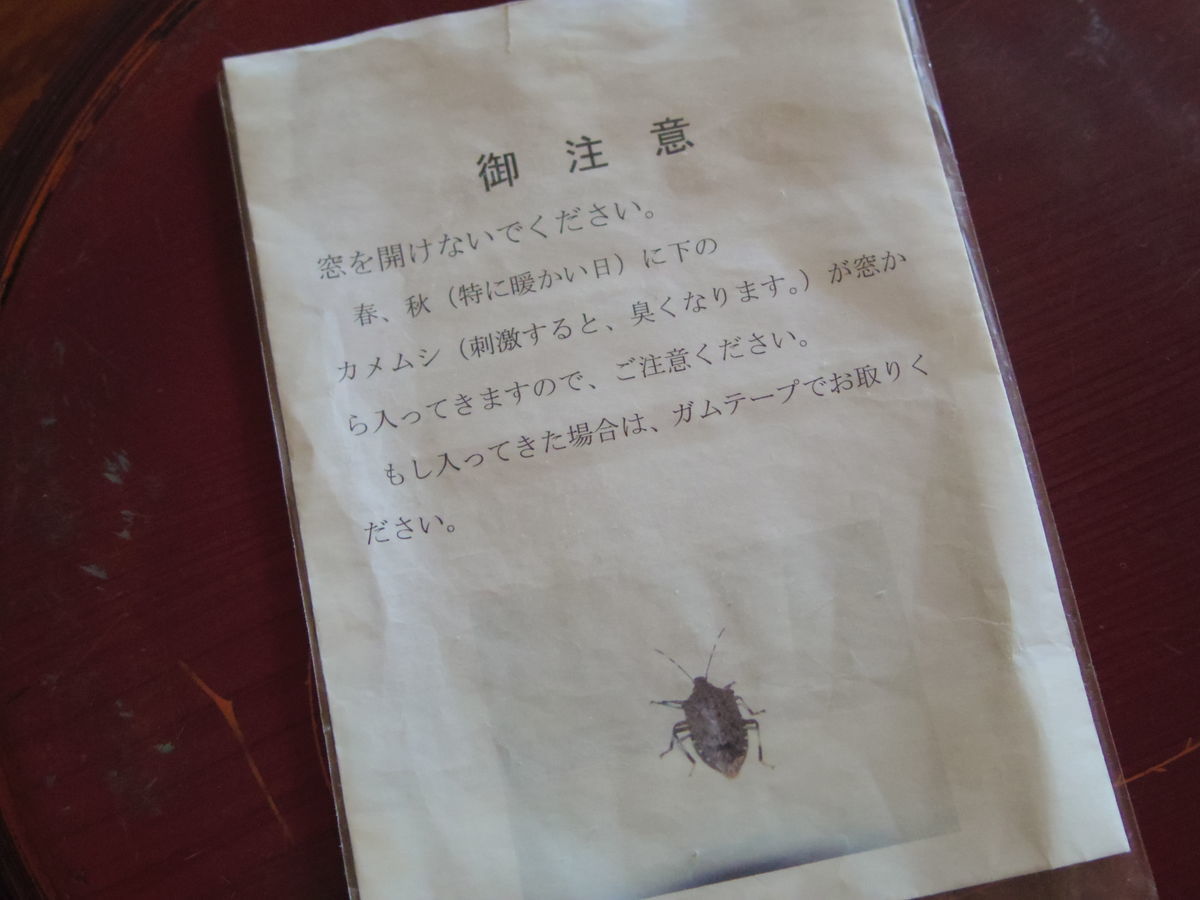 御注意
窓を開けないでください。
春、秋（特に暖かい日）に下の
カメムシ（刺激すると、臭くなります。）が窓か
ら入ってきますので、ご注意ください。
もし入ってきた場合は、ガムテープでお取りく
ださい。